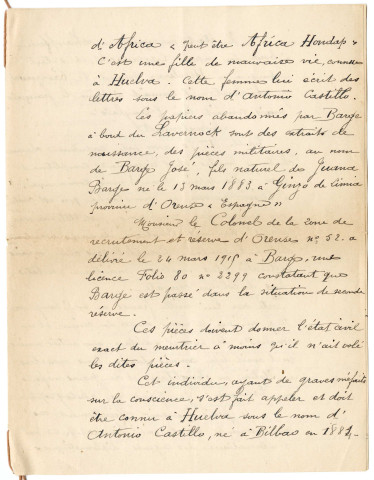 d'Africa « peut être Africa Hondap »
C'est une fille de mauvaise vie, connue
à Huelva. Cette femme lui écrit des
lettres sous le nom d'Antonio Castillo.
Les papiers abandonnés par Barge
à bord du Lavernock sont des extraits de
naissance, des pièces militaires, au nom
de Barge José, fils naturel de Juana
Barge né le 13 mars 1883 à Ginzo de Limia
province d'Orense « Espagne »
Monsieur le Colonel de la zone de
recrutement et réserve d'Orense n° 52. a
délivré le 24 mars 1915 à Barge, une
licence Folio 80 n° 2299 constatant que
Barge est passé dans la situation de seconde
réserve.
Ces pièces doivent donner l'état civil
exact du meurtrier à moins qu'il n'ait volé
les dites pièces.
Cet individu, ayant de graves méfaits
sur la conscience, s'est fait appeler et doit
être connu à Huelva sous le nom d'
Antonio Castillo, né à Bilbao en 1884,-